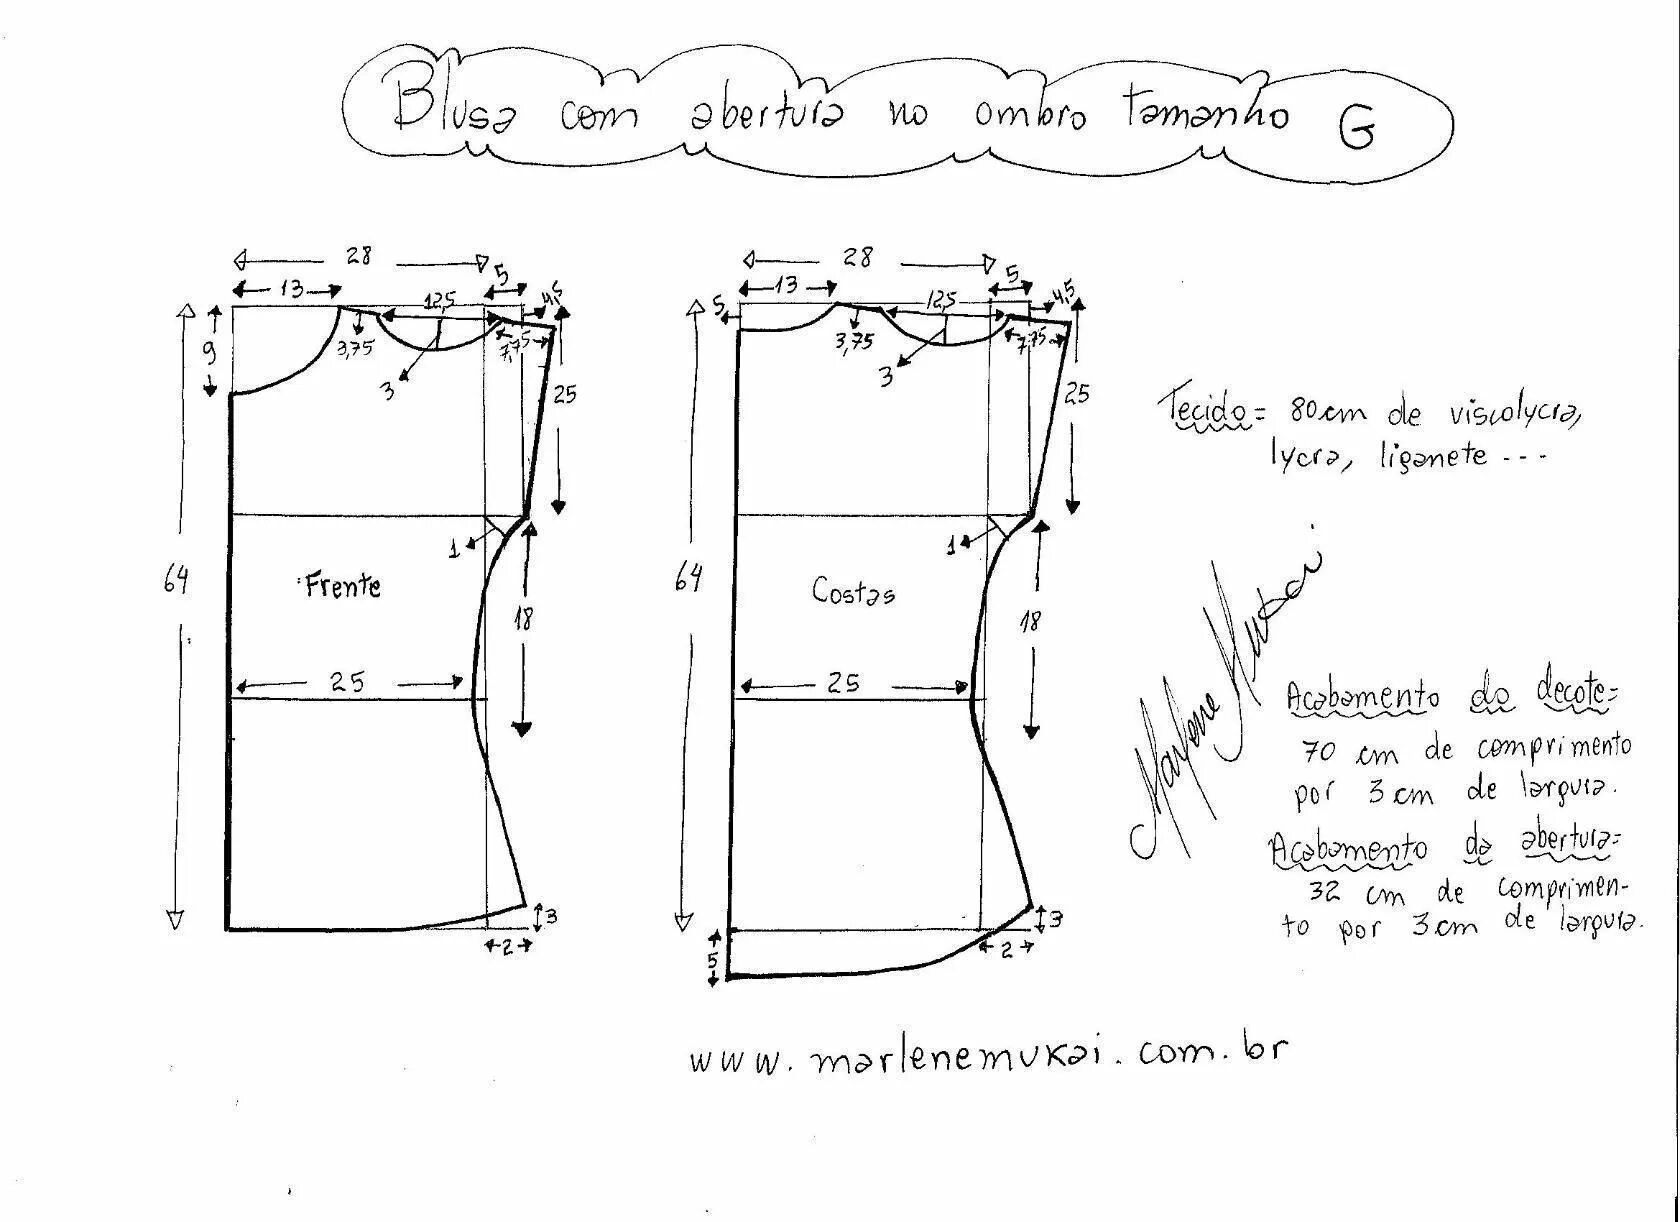 Blusa com abertura no ombro tamanho G
28
13
5
12,5
4,5
9
3,75
3
7,75
25
64
1
Frente
18
25
3
2
28
13
5
5
12,5
4,5
3,75
3
7,75
25
64
1
Costas
18
25
3
2
5
Tecido= 80cm de viscolycra,
lycra, liganete ---
Marlene Mukai
Acabamento do decote=
70 cm de comprimento
por 3cm de largura.
Acabamento da abertura=
32 cm de comprimen-
to por 3cm de largura.
www.marlenemukai.com.br